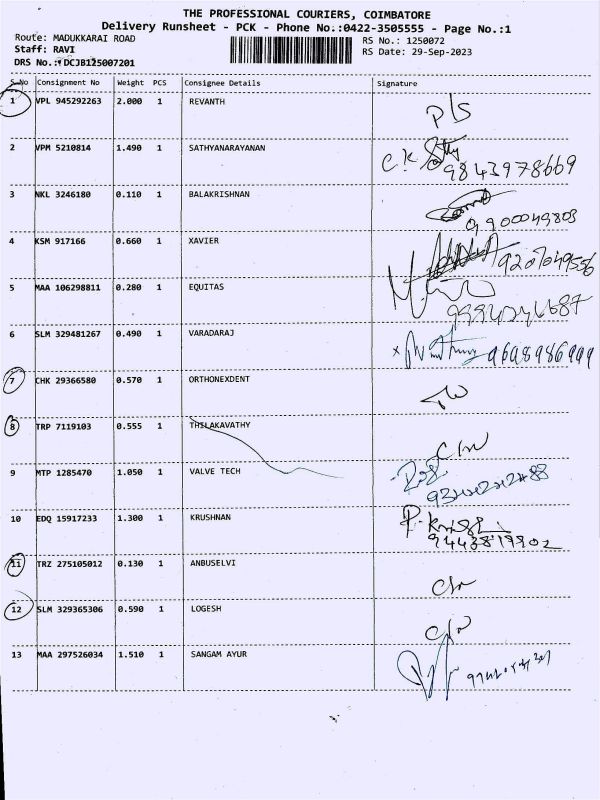 THE PROFESSIONAL COURIERS, COIMBATORE
Delivery Runsheet - PCK - Phone No.:0422-3505555 - Page No.:1
Route: MADUKKARAI ROAD
RS No.: 1250072
Staff: RAVI
RS Date: 29-Sep-2023
DRS No.: DCJB125007201
S.No Consignment No Weight PCS Consignee Details Signature
1 VPL 945292263 2.000 1 REVANTH
2 VPM 5210814 1.490 1 SATHYANARAYANAN
9843978669
3 NKL 3246180 0.110 1 BALAKRISHNAN
9900049803
4 KSM 917166 0.660 1 XAVIER
9207049556
5 MAA 106298811 0.280 1 EQUITAS
6 SLM 329481267 0.490 1 VARADARAJ
9698986999
7 CHK 29366580 0.570 1 ORTHONEXDENT
8 TRP 7119103 0.555 1 THILAKAVATHY
9 MTP 1285470 1.050 1 VALVE TECH
10 EDQ 15917233 1.300 1 KRUSHNAN
11 TRZ 275105012 0.130 1 ANBUSELVI
12 SLM 329365306 0.590 1 LOGESH
13 MAA 297526034 1.510 1 SANGAM AYUR